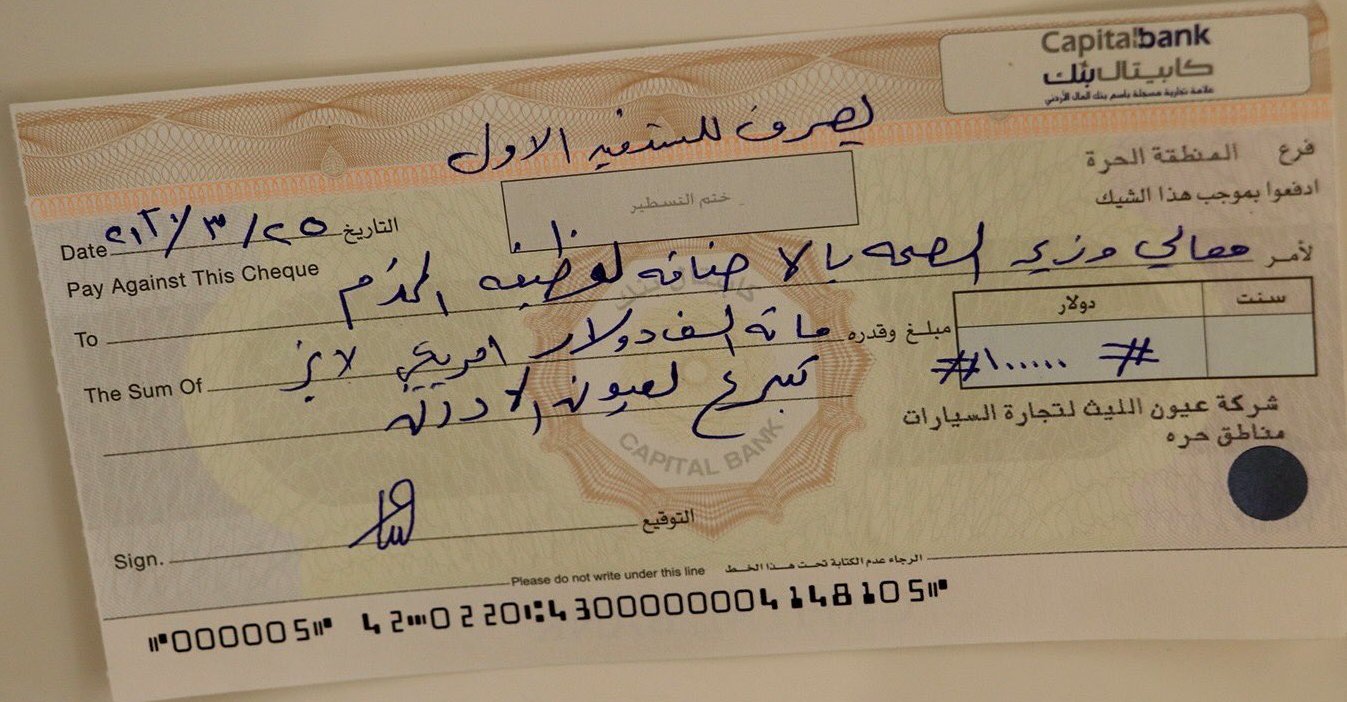 Capitalbank
كابيتال بنك
علامة تجارية مسجلة باسم بنك المال الأردني
يصرف للمستفيد الاول
ختم التسطير
فرع المنطقة الحرة
ادفعوا بموجب هذا الشيك
Date ٢٥/٣/ التاريخ
Pay Against This Cheque
To معالي وزير الصحه بالاضافه لوظيفته لأمر
سنت دولار
The Sum Of مائة الف دولار امريكي لا غير مبلغ وقدره
#١٠٠٠٠٠ #
تبرع لعيون الاردن
شركة عيون الليث لتجارة السيارات
مناطق حره
CAPITAL BANK
كابيتال بنك
Sign. التوقيع
Please do not write under this line الرجاء عدم الكتابة تحت هذا الخط
⑈000005⑈ 42⑉0220⑆4300000004148105⑈